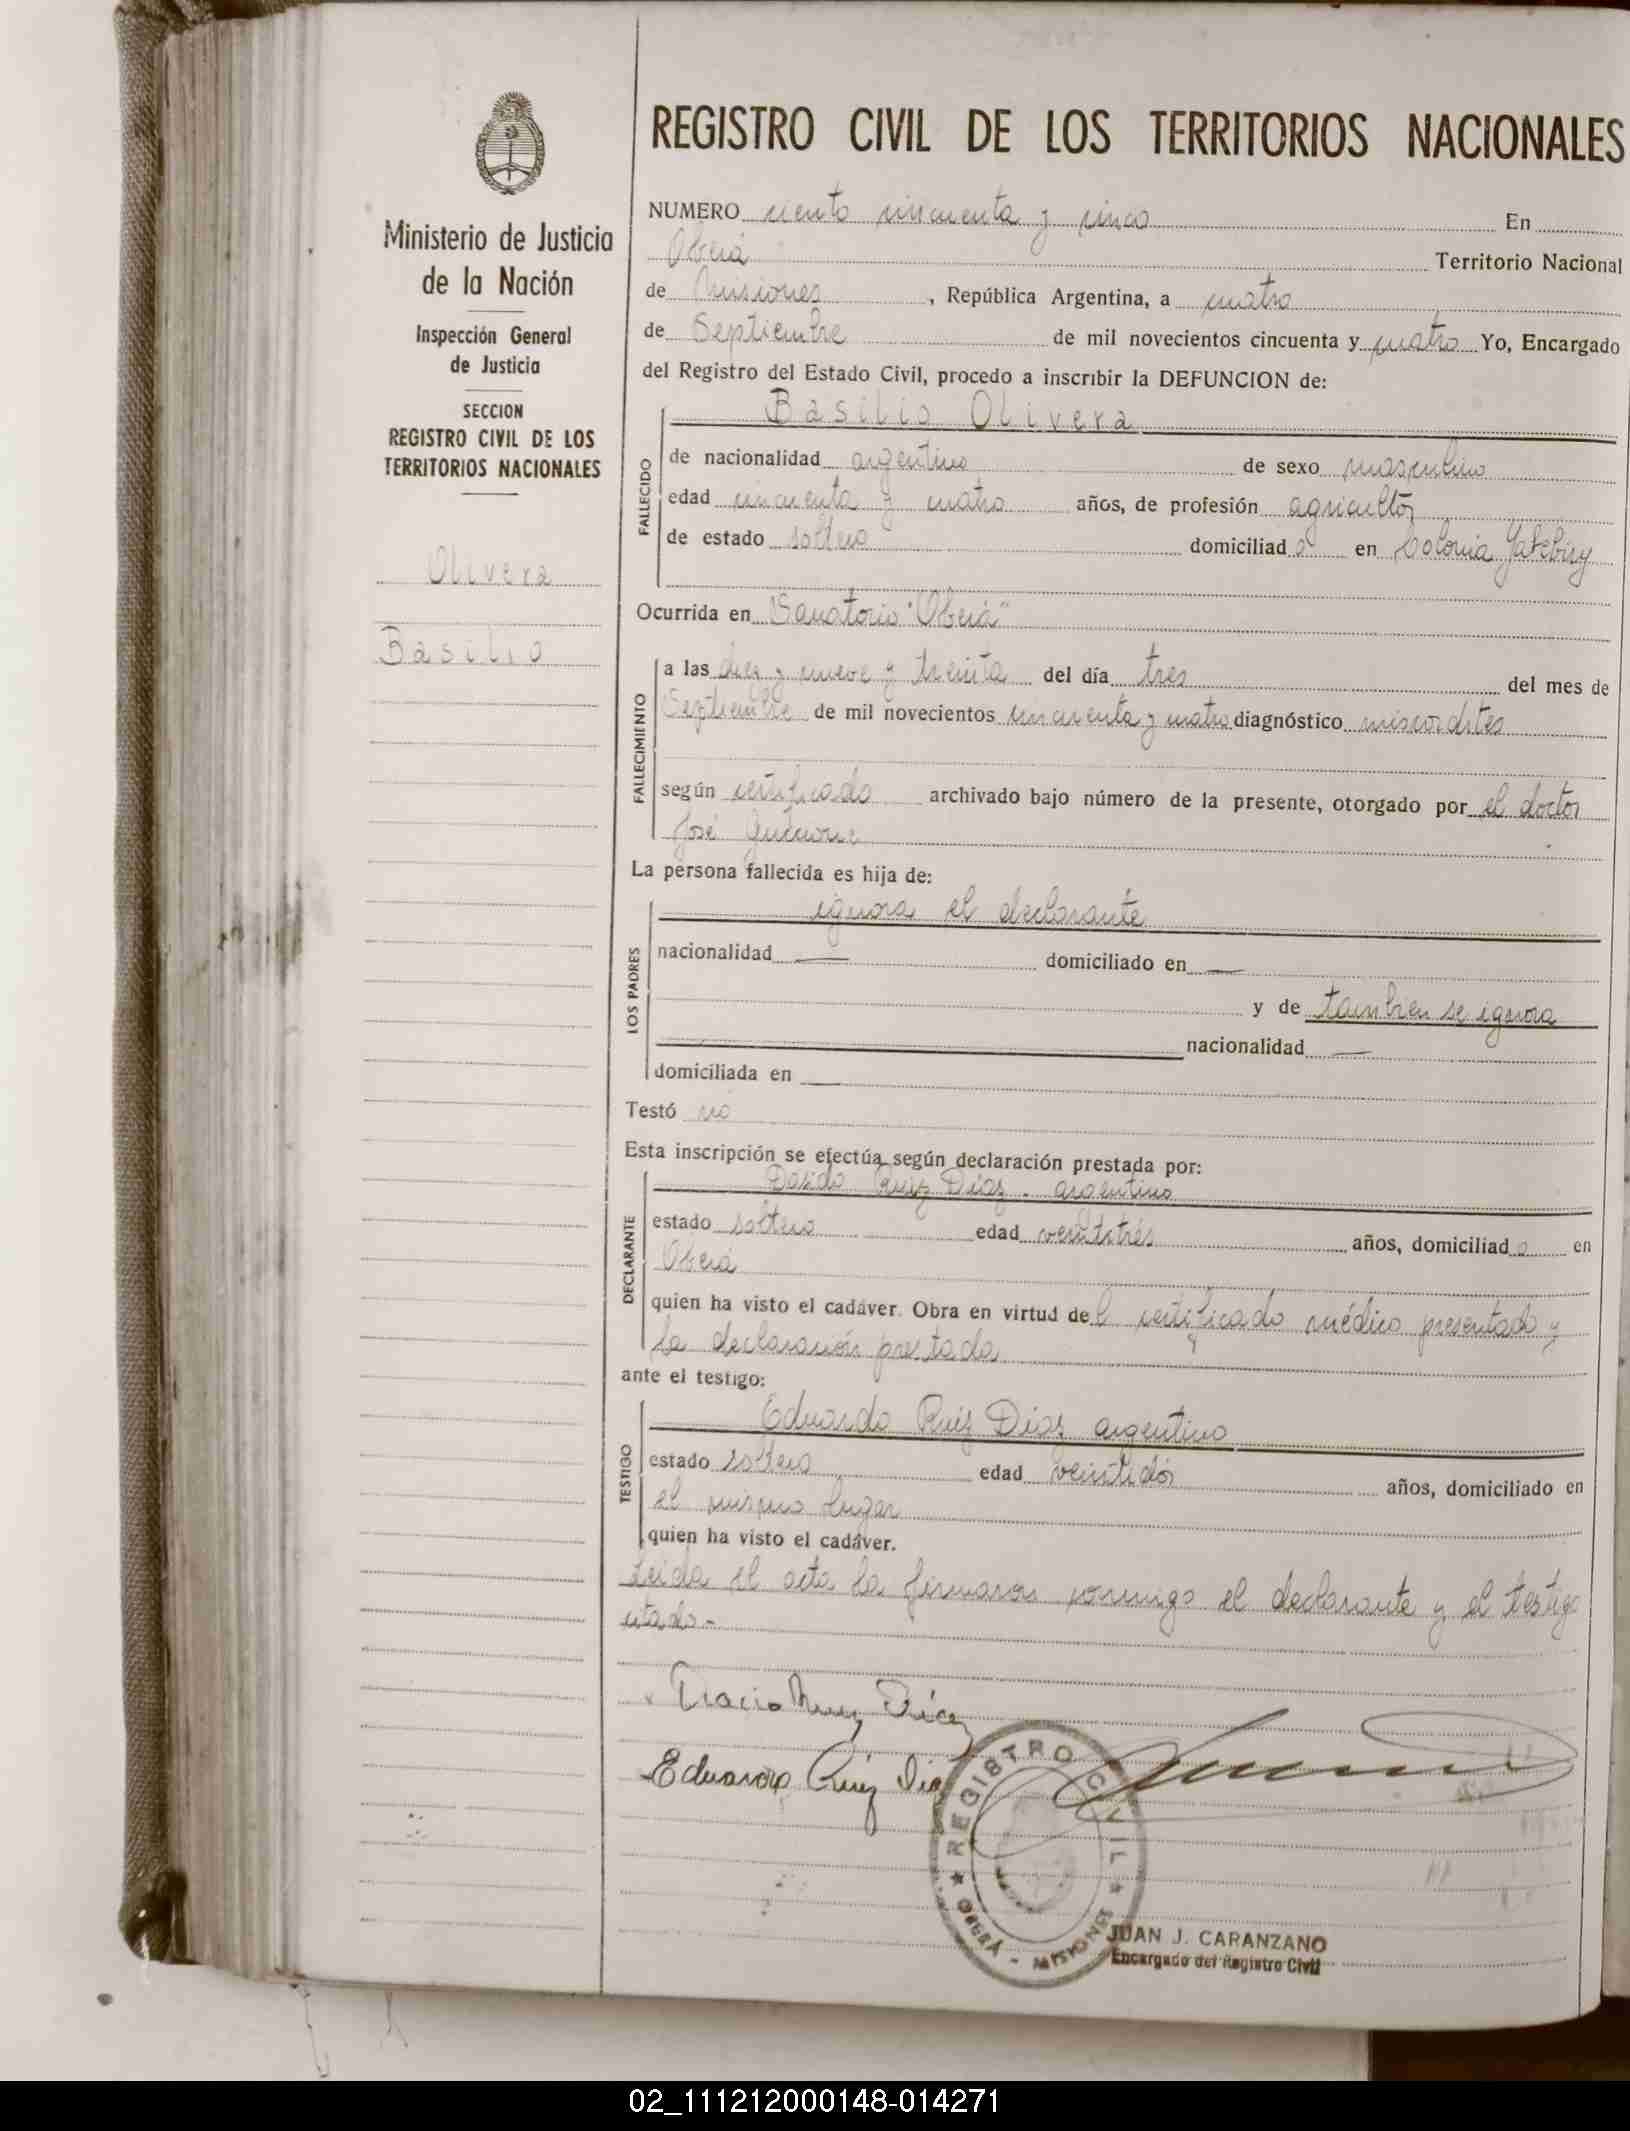 Ministerio de Justicia
de la Nación
Inspección General
de Justicia
SECCION
REGISTRO CIVIL DE LOS
TERRITORIOS NACIONALES
Olivera
Basilio
REGISTRO CIVIL DE LOS TERRITORIOS NACIONALES
NUMERO ciento cincuenta y cinco En
Oberá Territorio Nacional
de Misiones, República Argentina, a cuatro
de Septiembre de mil novecientos cincuenta y cuatro Yo, Encargado
del Registro del Estado Civil, procedo a inscribir la DEFUNCION de:
Basilio Olivera
FALLECIDO
de nacionalidad argentino de sexo masculino
edad cincuenta y cuatro años, de profesión agricultor
de estado soltero domiciliado en Colonia
Ocurrida en Sanatorio "Oberá"
FALLECIMIENTO
a las diez y nueve y treinta del día tres del mes de
Septiembre de mil novecientos cincuenta y cuatro diagnóstico
según certificado archivado bajo número de la presente, otorgado por el doctor
José
La persona fallecida es hija de:
LOS PADRES
ignora el declarante
nacionalidad — domiciliado en —
y de tambien se ignora
nacionalidad —
domiciliada en —
Testó no
Esta inscripción se efectúa según declaración prestada por:
DECLARANTE
Ruiz Diaz. argentino
estado soltero edad veintitrés años, domiciliado en
Oberá
quien ha visto el cadáver. Obra en virtud del certificado médico presentado y
la declaración prestada
ante el testigo:
TESTIGO
Eduardo Ruiz Diaz argentino
estado soltero edad veintidós años, domiciliado en
el mismo lugar
quien ha visto el cadáver.
Leida el acta la firmaron conmigo el declarante y el testigo
citado.-
Ruiz Díaz
Eduardo Ruiz Dia
REGISTRO CIVIL
OBERÁ - MISIONES
JUAN J. CARANZANO
Encargado del Registro Civil
02_111212000148-014271